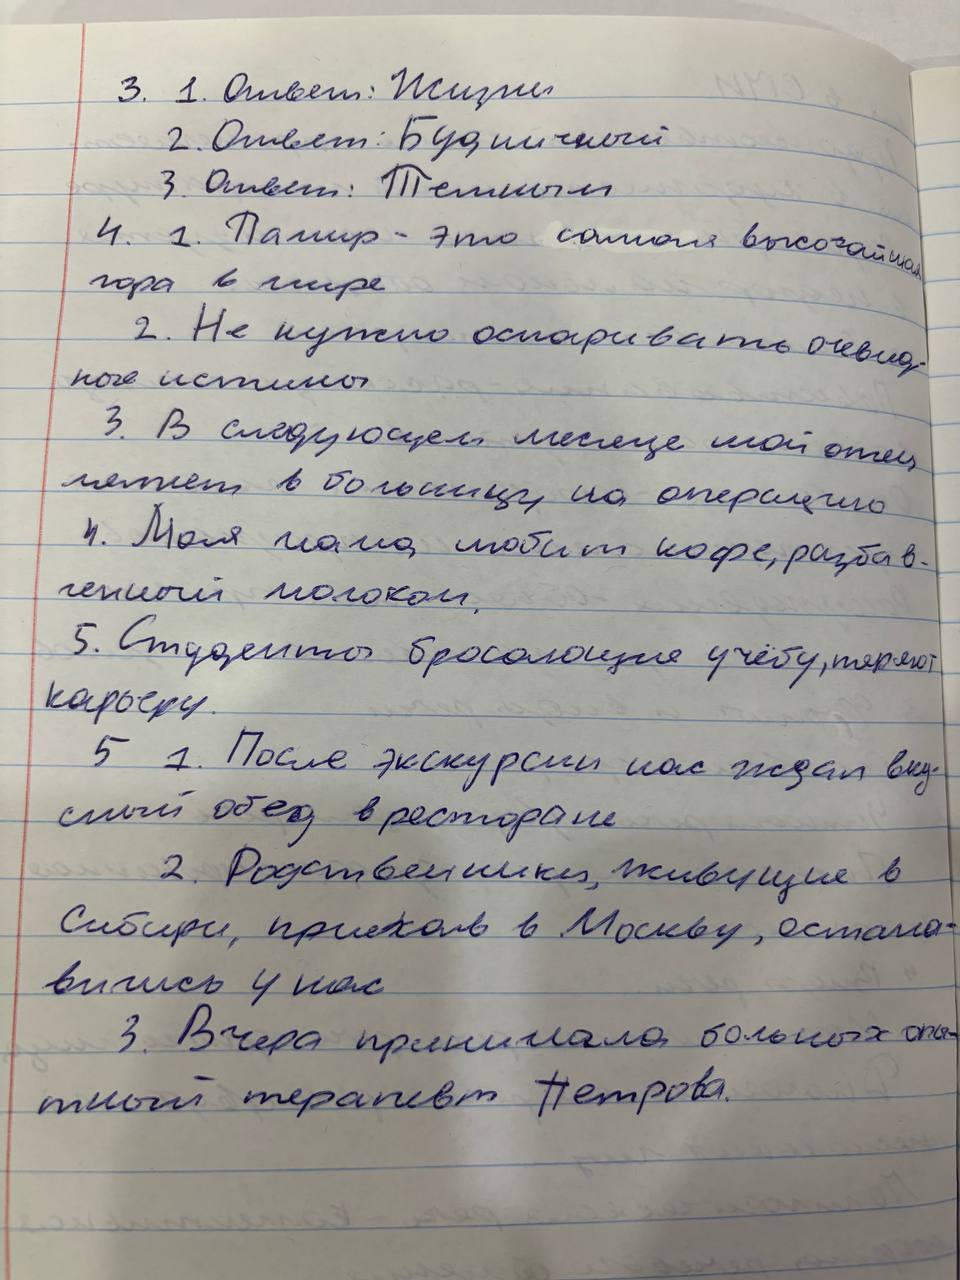 3. 1. Ответ: Жизни
2. Ответ: Будничный
3. Ответ: Темным
4. 1. Памир - это самая высочайшая
гора в мире
2. Не нужно оспаривать очевид-
ные истины
3. В следующем месяце мой отец
ляжет в больницу на операцию
4. Моя мама любит кофе, разбав-
ленный молоком.
5. Студенты бросающие учёбу, теряют
карьеру.
5 1. После экскурсии нас ждал вку-
сный обед в ресторане
2. Родственники, живущие в
Сибири, приехав в Москву, остана-
вились у нас
3. Вчера принимала больных опы-
тный терапевт Петрова.